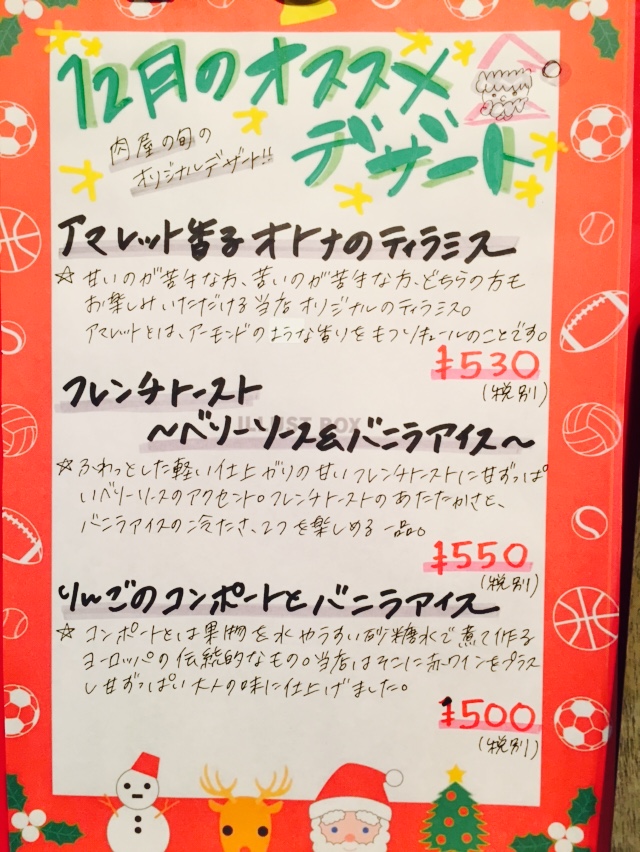 12月のオススメ
デザート
肉屋の旬の
オリジナルデザート!!
アマレット香る オトナのティラミス
☆ 甘いのが苦手な方、苦いのが苦手な方、どちらの方も
お楽しみいただける当店オリジナルのティラミス。
アマレットとは、アーモンドのような香りをもつリキュールのことです。
¥530
(税別)
フレンチトースト
ILLUST BOX
～ベリーソース&バニラアイス～
☆ ふわっとした軽い仕上がりの甘いフレンチトーストに甘ずっぱ
いベリーソースのアクセント。フレンチトーストのあたたかさと、
バニラアイスの冷たさ、2つを楽しめる一品。
¥550
(税別)
りんごのコンポートとバニラアイス
☆ コンポートとは果物を水やうすい砂糖水で煮て作る
ヨーロッパの伝統的なもの。当店はそこに赤ワインをプラス
し甘ずっぱい大人の味に仕上げました。
¥500
(税別)